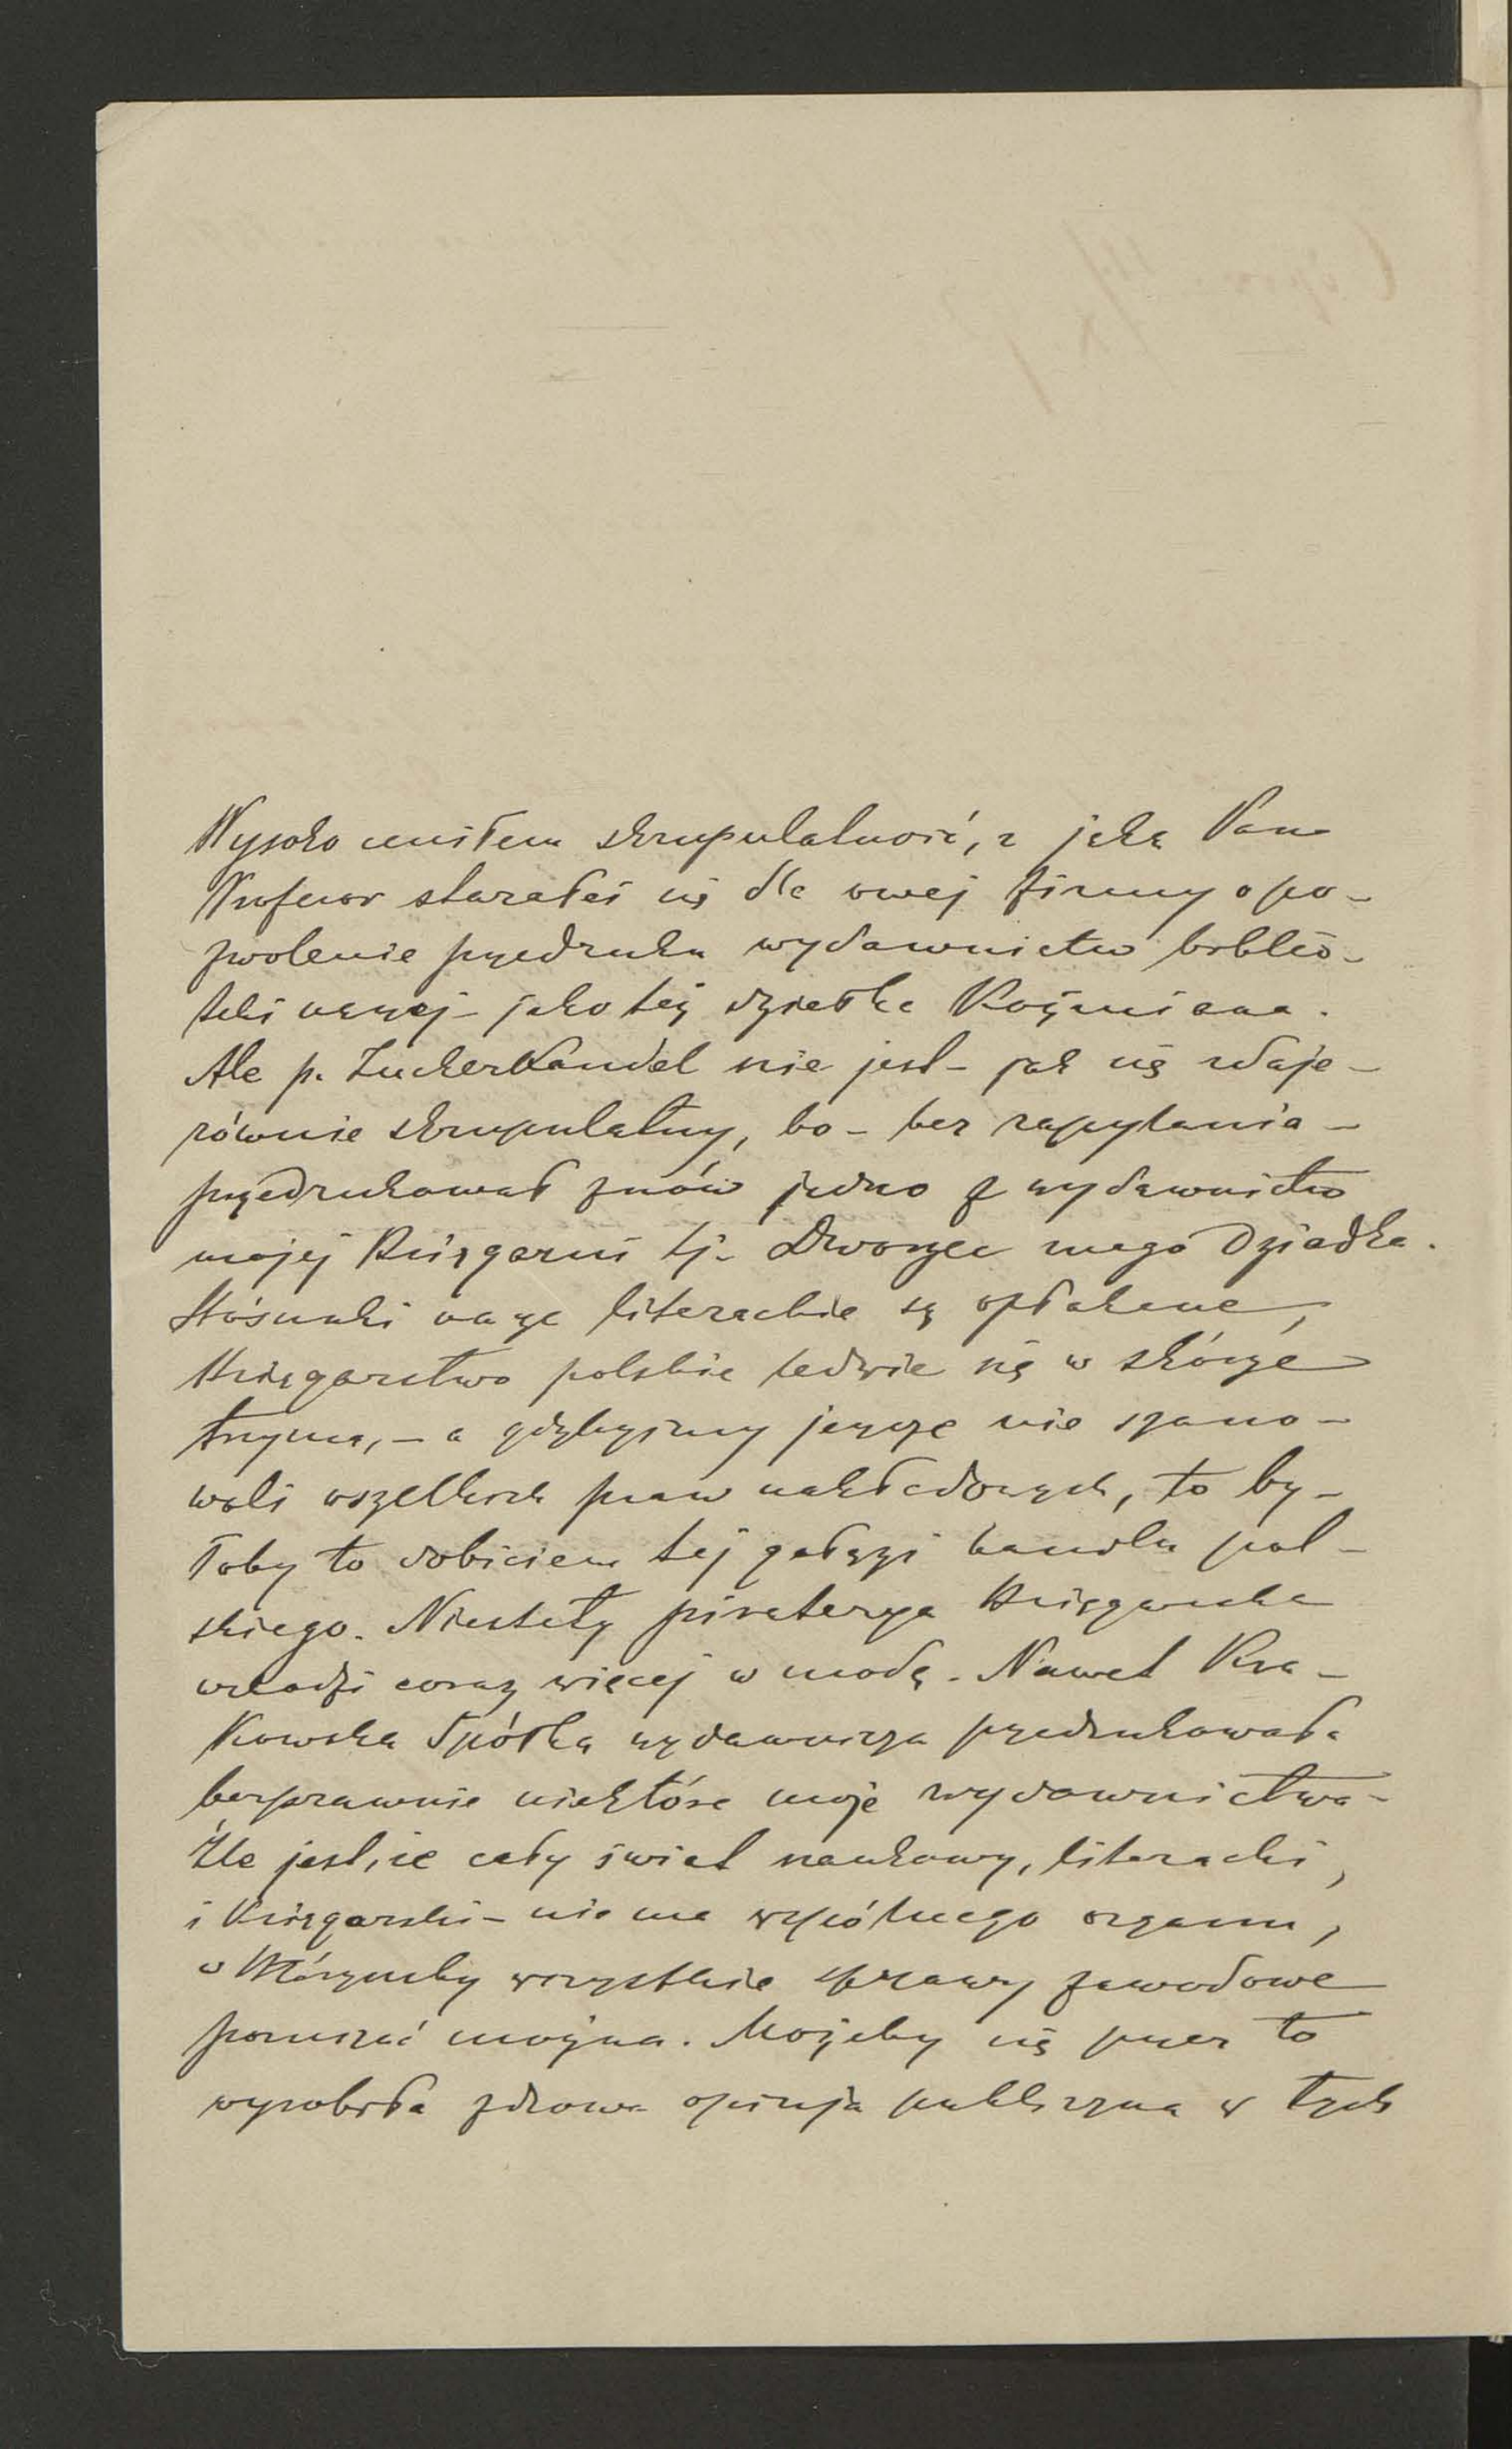 Wysoko ceniłem skrupulatność, z jaką Pan
Profesor starałeś się dla owej firmy o po-
zwolenie przedruku wydawnictw bibljo-
teki naszej - jako też dziełka Koźmiana.
Ale p. Zuckerkandel nie jest - jak się zdaje -
równie skrupulatny, bo - bez zapytania -
przedrukował znów jedno z wydawnictw
mojej Księgarni tj. Dworzec mego Dziadka.
Stósunki nasze literackie są opłakane,
Księgarstwo polskie ledwie się w skórze
trzyma, - a gdybyśmy jeszcze nie szano-
wali wszelkich praw nakładowych, to by-
łoby to dobiciem tej gałęzi handlu pol-
skiego. Niestety piraterya Księgarska
wchodzi coraz więcej w modę. Nawet Kra-
kowska Spółka wydawnicza przedrukowała
bezprawnie niektóre moje wydawnictwa -
Źle jest, że cały świat naukowy, literacki,
i Księgarski - nie ma wspólnego organu,
w którymby wszystkie sprawy zawodowe
poruszać można. Możeby się przez to
wyrobiła zdrowa opinja publiczna w tych